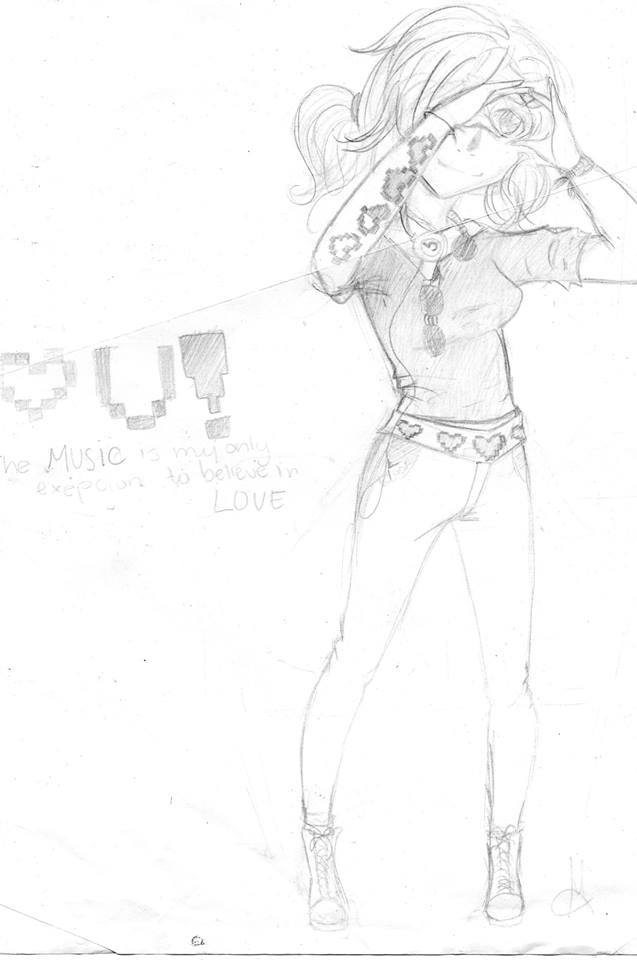 U!
The MUSIC is my only
exepcion to believe in
LOVE